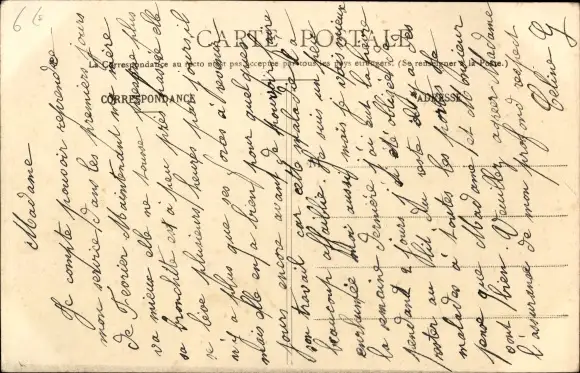 CARTE POSTALE
La Correspondance au recto n'est pas acceptée par tous les pays étrangers. (Se renseigner à la Poste.)
CORRESPONDANCE
ADRESSE
Madame
Je compte pouvoir reprendre
mon service dans les premiers jours
de Février. Maintenant ma mère
va mieux elle ne tousse presque plus
sa bronchite est à peu près passée elle
se lève plusieurs heures par jour, il
n'y a plus que ses forces à revenir
mais elle en a bien pour quelques
jours encore avant de pourvoir faire
son travail car cette maladie l'a
beaucoup affaiblie. Je suis un peu
enrhumée moi aussi mais je vais mieux
la semaine dernière j'ai eu la fièvre
pendant 2 jours j'ai été obligée de
rester au lit du reste il y a des
malades à toutes les portes. Je
pense que Madame et Monsieur
vont bien. Veuillez agréer Madame
l'assurance de mon profond respect
Céline G